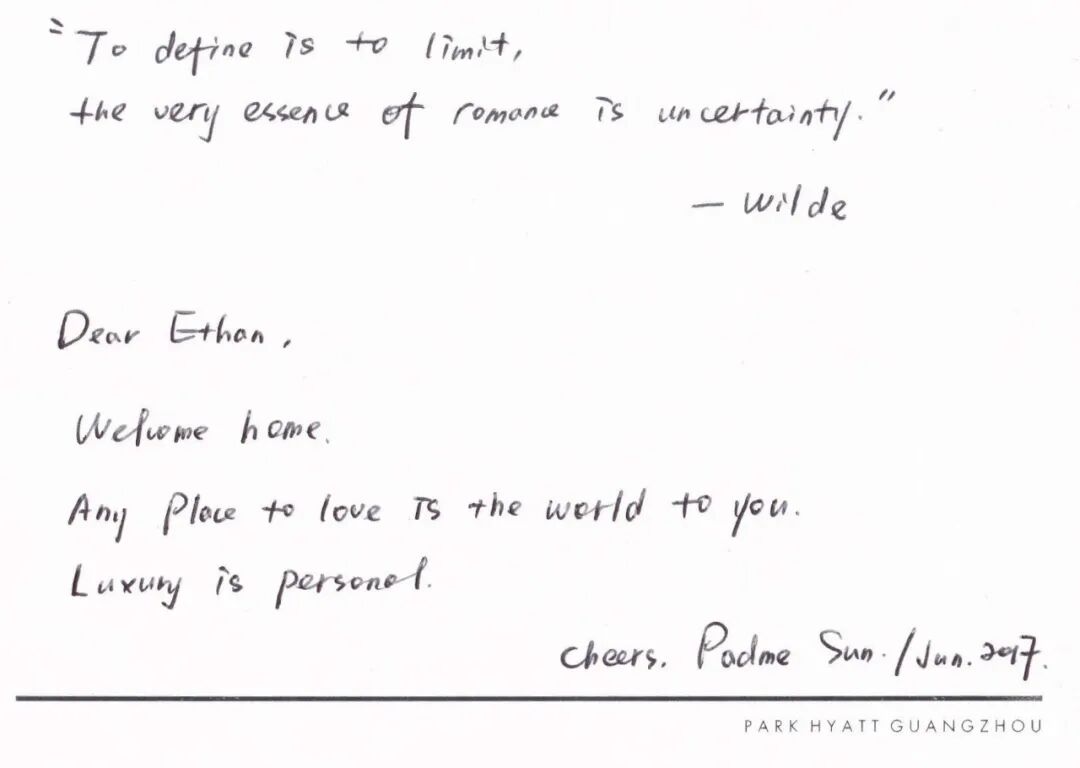 "To define is to limit,
the very essence of romance is uncertainty."
— Wilde
Dear Ethan,
Welcome home.
Any Place to love is the world to you.
Luxury is personal.
Cheers. Padme Sun. / Jun. 2017.
PARK HYATT GUANGZHOU